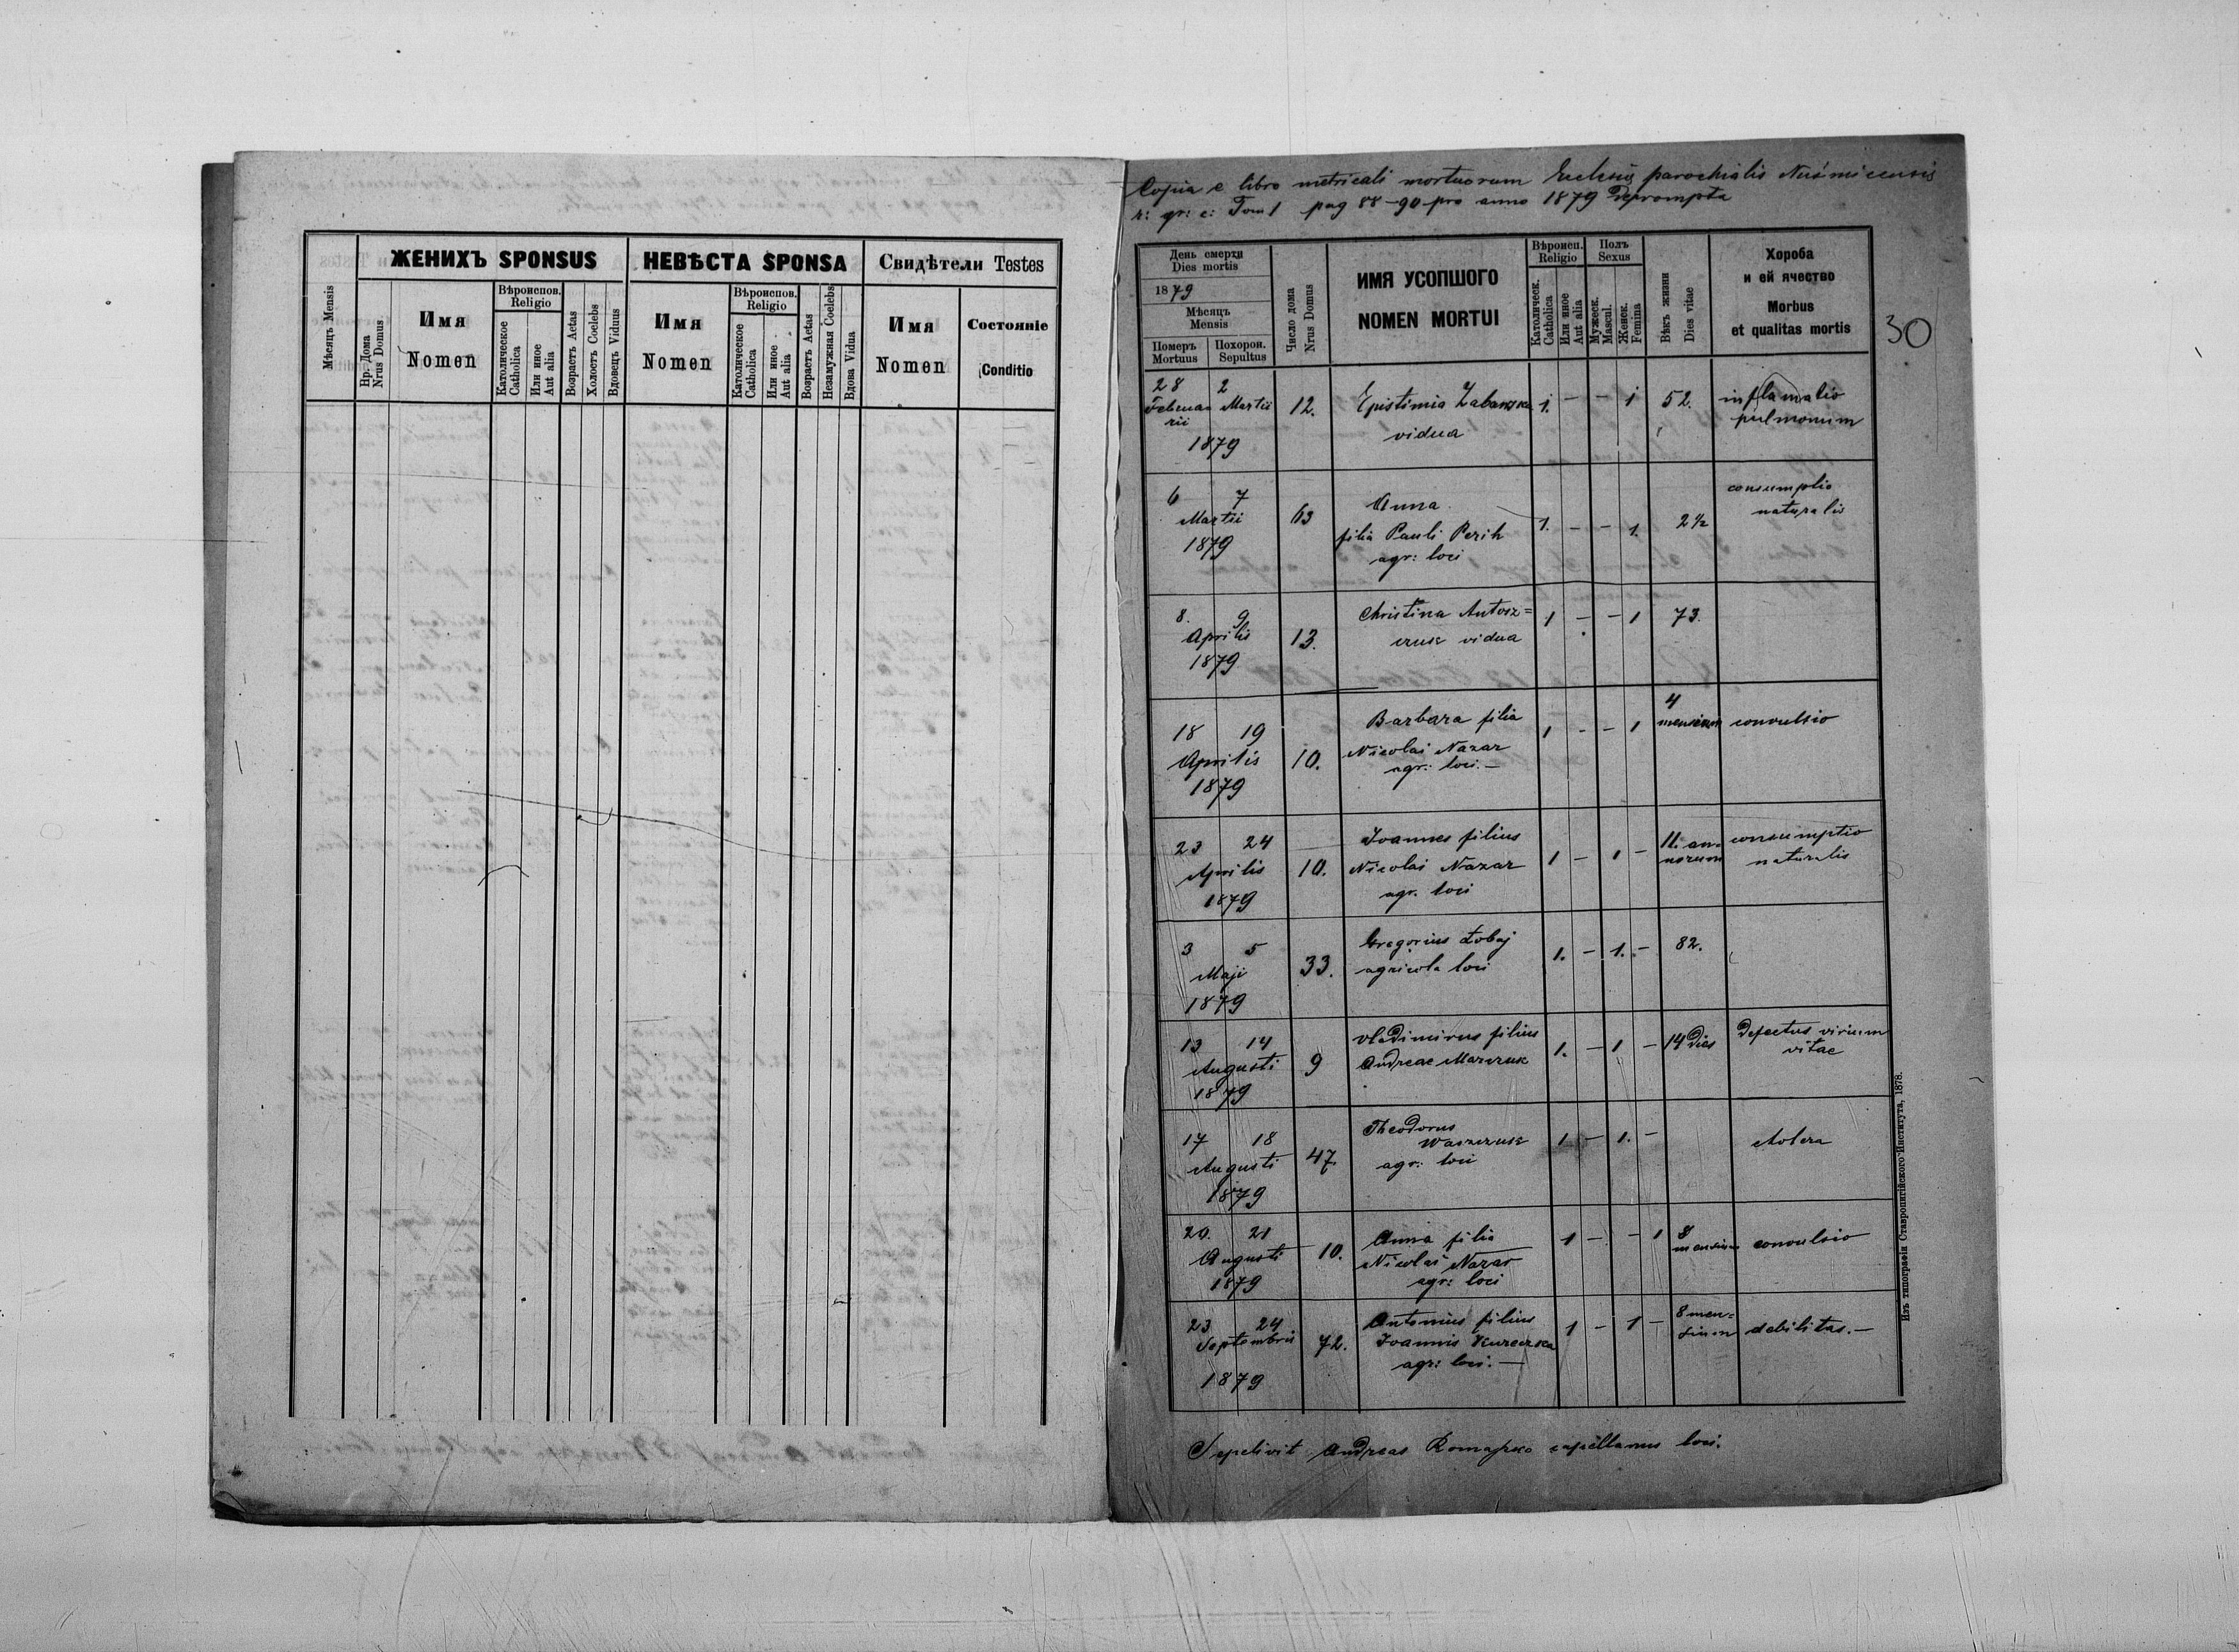 ЖЕНИХЪ SPONSUS
НЕВѢСТА SPONSA
Свидѣтели Testes
Мѣсяцъ Mensis
Нр. Дома
Nrus Domus
Имя
Nomen
Вѣроиспов.
Religio
Католическое
Catholica
Или иное
Aut alia
Возрастъ Aetas
Холостъ Coelebs
Вдовецъ Viduus
Имя
Nomen
Вѣроиспов.
Religio
Католическое
Catholica
Или иное
Aut alia
Возрастъ Aetas
Незамужная Coelebs
Вдова Vidua
Имя
Nomen
Состоянiе
Conditio
Copia e libro metricali mortuorum Ecclesiæ parochialis
r: gr: c: Tom 1 pag 88-90 pro anno 1879 Deprompta
30
День смерти
Dies mortis
1879
Мѣсяцъ
Mensis
Померъ
Mortuus
Похорон.
Sepultus
Число дома
Nrus Domus
ИМЯ УСОПШОГО
NOMEN MORTUI
Вѣроисп.
Religio
Католическ.
Catholica
Или иное
Aut alia
Полъ
Sexus
Мужеск.
Mascul.
Женск.
Femina
Вѣкъ жизни
Dies vitae
Хороба
и ей ячество
Morbus
et qualitas mortis
28 2
Februa Martii 12. Epistimia 1. - - 1 52. inflamatio
rii vidua pulmonum
1879
6 7 Anna consumptio
Martii 63 filia Pauli Perih 1. - - 1. 2 ½ naturalis
1879 agr: loci
8. 9 Christina Antosz=
Aprilis 13. czuk vidua 1 - - 1 73.
1879
18 19 Barbara filia 4
Aprilis 10. Nicolai Nazar 1 - - 1 mensium convulsio
1879 agr: loci. -
23 24 Joannes filius 11. an=
Aprilis 10. Nicolai Nazar 1 - 1 - norum consumptio
1879 agr. loci naturalis
3 5 Gregorius Łobaj
Maji 33. agricola loci 1. - 1. - 82.
1879
13 14 Vladimirus filius
Augusti 9 Andreae Marczuk 1. - 1 - 14 Dies Defectus virium
1879 vitae
17 18 Theodorus
Augusti 47. Waszczuk 1 - 1. - cholera
1879 agr: loci
20. 21 Anna filia 8
Augusti 10. Nicolai Nazar 1 - - 1 mensium convulsio
1879 agr: loci
23 24 Antonius filius 8 men=
Septembris 72. Joannis 1 - 1 - sium debilitas. -
1879 agr: loci. -
Sepelivit Andreas capellanus loci.
Изъ типографіи Ставропигійского Института, 1878.